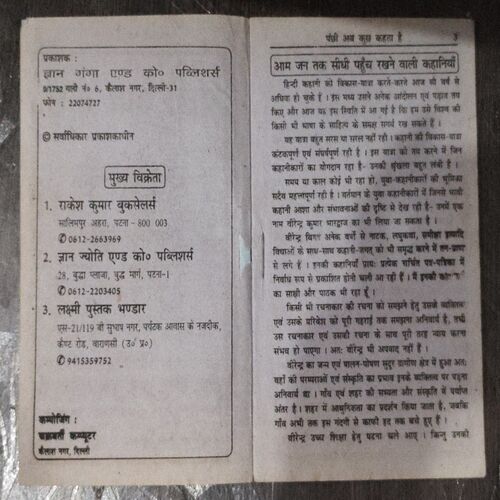 प्रकाशक :
ज्ञान गंगा एण्ड को० पब्लिशर्स
9/1752 गली नं० 6, कैलाश नगर, दिल्ली-31
फोन : 22074727
© सर्वाधिकार प्रकाशकाधीन
मुख्य विक्रेता
1. राकेश कुमार बुकसेलर्स
सालिमपुर अहरा, पटना - 800 003
✆ 0612-2663969
2. ज्ञान ज्योति एण्ड को० पब्लिशर्स
28, बुद्धा प्लाजा, बुद्ध मार्ग, पटना-1
✆ 0612-2203405
3. लक्ष्मी पुस्तक भण्डार
एस-21/119 जी सुभाष नगर, पर्यटक आवास के नजदीक,
कैण्ट रोड, वाराणसी (उ० प्र०)
✆ 9415359752
कम्पोजिंग :
चक्रवर्ती कम्प्यूटर
कैलाश नगर, दिल्ली
पंछी अब कुछ कहता है 3
आम जन तक सीधी पहुँच रखने वाली कहानियाँ
हिन्दी कहानी को विकास-यात्रा करते-करते आज सौ वर्ष से
अधिया हो चुके हैं । इस मध्य उसने अनेक आन्दोलन एवं पड़ाव तय
किए और आज यह इस स्थिति में आ गई है कि हम उसे विश्व की
किसी भी भाषा के साहित्य के समक्ष सगर्व रख सकते हैं ।
यह यात्रा बहुत सरस या सरल नहीं रही । कहानी की विकास-यात्रा
कंटकपूर्ण एवं संघर्षपूर्ण रही है । इस यात्रा को तय करने में जिन
कहानीकारों का योगदान रहा है- उनकी श्रृंखला बहुत लंबी है ।
समय या काल कोई भी रहा हो, युवा-कहानीकारों की भूमिका
सदैव महत्त्वपूर्ण रही है । वर्तमान के युवा कहानीकारों में जिनसे भावी
कहानी आशा और संभावनाओं की दृष्टि से देख रही है- उनमें एक
नाम वीरेन्द्र कुमार भारद्वाज का भी लिया जा सकता है ।
वीरेन्द्र विगत अनेक वर्षों से नाटक, लघुकथा, समीक्षा इत्यादि
विद्याओं के साथ-साथ कहानी-जगत् को भी समृद्ध करने में
से लगे हैं । इनकी कहानियाँ प्रायः प्रत्येक चर्चित पत्र-पत्रिका में
निर्बाध रूप से प्रकाशित होती चली आ रही हैं । मैं इनकी
का साक्षी और पाठक भी रहा हूँ ।
किसी भी रचनाकार की रचना को समझने हेतु उसके व्यक्तित्व
एवं उसके परिवेश को पूरी गहराई तक समझना अनिवार्य है, तभी
उस रचनाकार एवं उसकी रचना के साथ पूरी तरह न्याय करना
संभव हो पाएगा । अतः वीरेन्द्र भी अपवाद नहीं है ।
वीरेन्द्र का जन्म एवं पालन-पोषण सुदूर ग्रामीण क्षेत्र में हुआ अतः
वहाँ की परम्पराओं एवं संस्कृति का प्रभाव इनके व्यक्तित्व पर पड़ना
अनिवार्य था । गाँव एवं शहर की सभ्यता और संस्कृति में पर्याप्त
अंतर है । शहर में आधुनिकता का प्रदर्शन किया जाता है, जबकि
गाँव अभी तक इस गंदगी से काफी हद तक बचे हुए हैं ।
वीरेन्द्र उच्च शिक्षा हेतु पटना चले आए । किन्तु उनकी